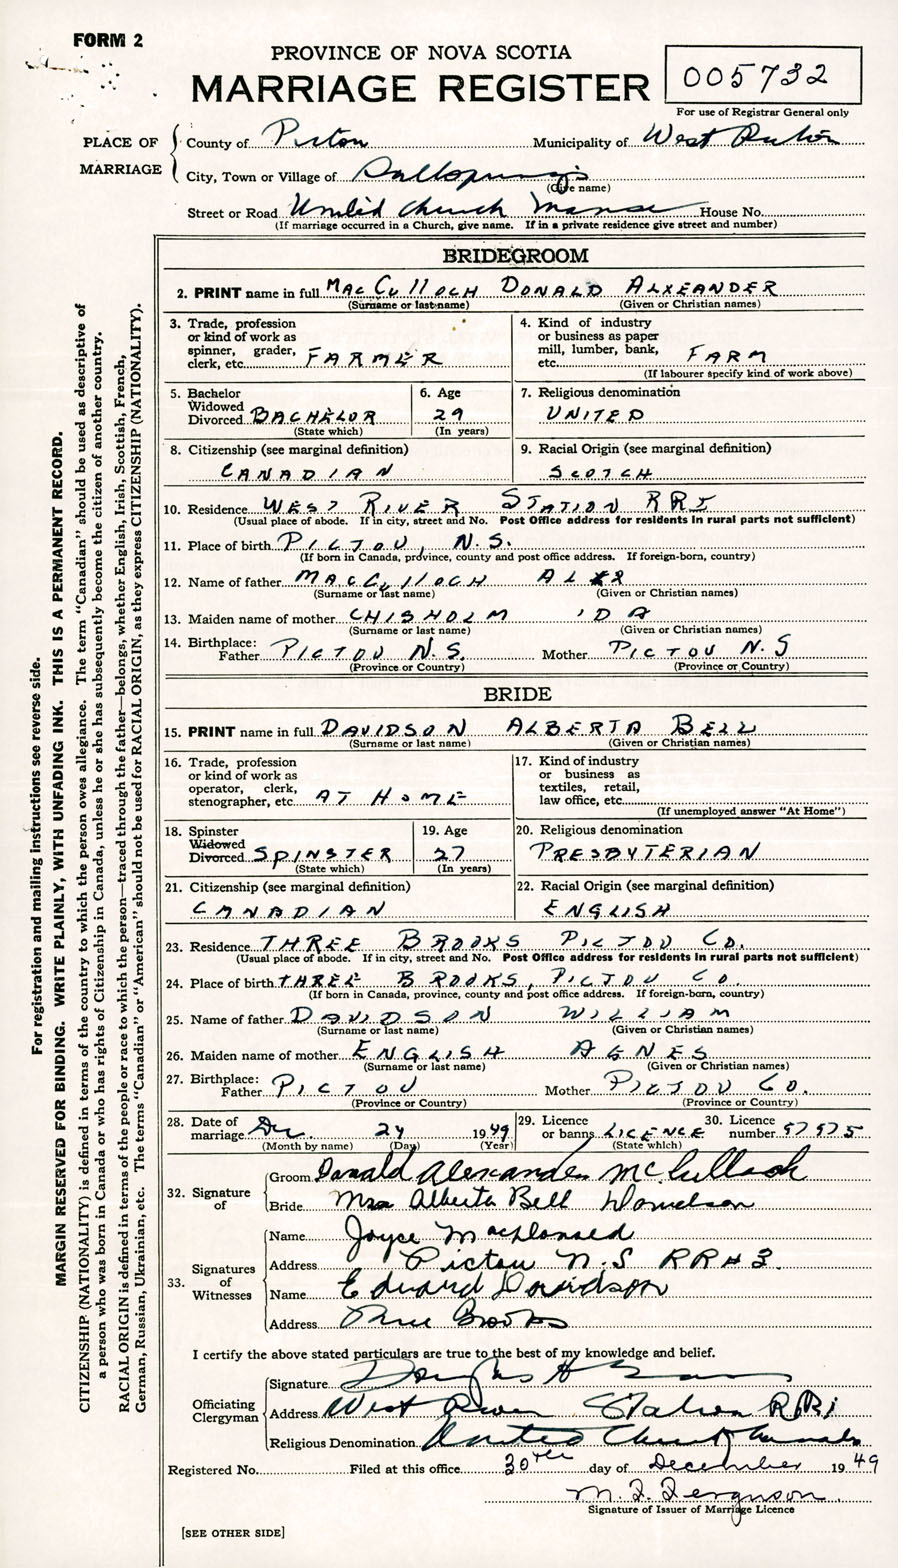 FORM 2
PROVINCE OF NOVA SCOTIA
MARRIAGE REGISTER
005732
For use of Registrar General only
PLACE OF MARRIAGE
County of Pictou Municipality of West Pictou
City, Town or Village of Saltsprings
(Give name)
Street or Road United Church Manse House No.
(If marriage occurred in a Church, give name. If in a private residence give street and number)
BRIDEGROOM
2. PRINT name in full MacCulloch Donald Alxeander
(Surname or last name) (Given or Christian names)
3. Trade, profession or kind of work as spinner, grader, clerk, etc. FARMER
4. Kind of industry or business as paper mill, lumber, bank, etc. FARM
(If labourer specify kind of work above)
5. Bachelor Widowed Divorced BACHELOR
(State which)
6. Age 29
(In years)
7. Religious denomination
UNITED
8. Citizenship (see marginal definition)
CANADIAN
9. Racial Origin (see marginal definition)
SCOTCH
10. Residence WEST RIVER STATION RR1
(Usual place of abode. If in city, street and No. Post Office address for residents in rural parts not sufficient)
11. Place of birth PICTOU, N.S.
(If born in Canada, province, county and post office address. If foreign-born, country)
12. Name of father MACCULLOCH
(Surname or last name) (Given or Christian names)
13. Maiden name of mother CHISHOLM IDA
(Surname or last name) (Given or Christian names)
14. Birthplace: Father PICTOU N.S. Mother PICTOU N.S
(Province or Country) (Province or Country)
BRIDE
15. PRINT name in full DAVIDSON ALBERTA BELL
(Surname or last name) (Given or Christian names)
16. Trade, profession or kind of work as operator, clerk, stenographer, etc. AT HOME
17. Kind of industry or business as textiles, retail, law office, etc.
(If unemployed answer "At Home")
18. Spinster Widowed Divorced SPINSTER
(State which)
19. Age 27
(In years)
20. Religious denomination
PRESBYTERIAN
21. Citizenship (see marginal definition)
CANADIAN
22. Racial Origin (see marginal definition)
ENGLISH
23. Residence THREE BROOKS PICTOU CO.
(Usual place of abode. If in city, street and No. Post Office address for residents in rural parts not sufficient)
24. Place of birth THREE BROOKS, PICTOU CO.
(If born in Canada, province, county and post office address. If foreign-born, country)
25. Name of father DAVIDSON WILLIAM
(Surname or last name) (Given or Christian names)
26. Maiden name of mother ENGLISH AGNES
(Surname or last name) (Given or Christian names)
27. Birthplace: Father PICTOU Mother PICTOU CO.
(Province or Country) (Province or Country)
28. Date of marriage Dec. 24 1949
(Month by name) (Day) (Year)
29. Licence or banns LICENCE
(State which)
30. Licence number 57575
32. Signature of
Groom Donald Alexander McCulloch
Bride Mrs Alberta Bell
33. Signatures of Witnesses
Name Joyce
Address Pictou N.S RR#3.
Name Edward Davidson
Address Three Brooks
I certify the above stated particulars are true to the best of my knowledge and belief.
Officiating Clergyman
Signature
Address West River Station RR1
Religious Denomination United Church Canada
Registered No. Filed at this office 30th day of December 1949
M. F. Ferguson.
Signature of Issuer of Marriage Licence
[SEE OTHER SIDE]
For registration and mailing instructions see reverse side.
MARGIN RESERVED FOR BINDING. WRITE PLAINLY, WITH UNFADING INK. THIS IS A PERMANENT RECORD.
CITIZENSHIP (NATIONALITY) is defined in terms of the country to which the person owes allegiance. The term "Canadian" should be used as descriptive of
a person who was born in Canada or who has rights of Citizenship in Canada, unless he or she has subsequently become the citizen of another country.
RACIAL ORIGIN is defined in terms of the people or race to which the person—traced through the father—belongs, whether English, Irish, Scottish, French,
German, Russian, Ukrainian, etc. The terms "Canadian" or "American" should not be used for RACIAL ORIGIN, as they express CITIZENSHIP (NATIONALITY).